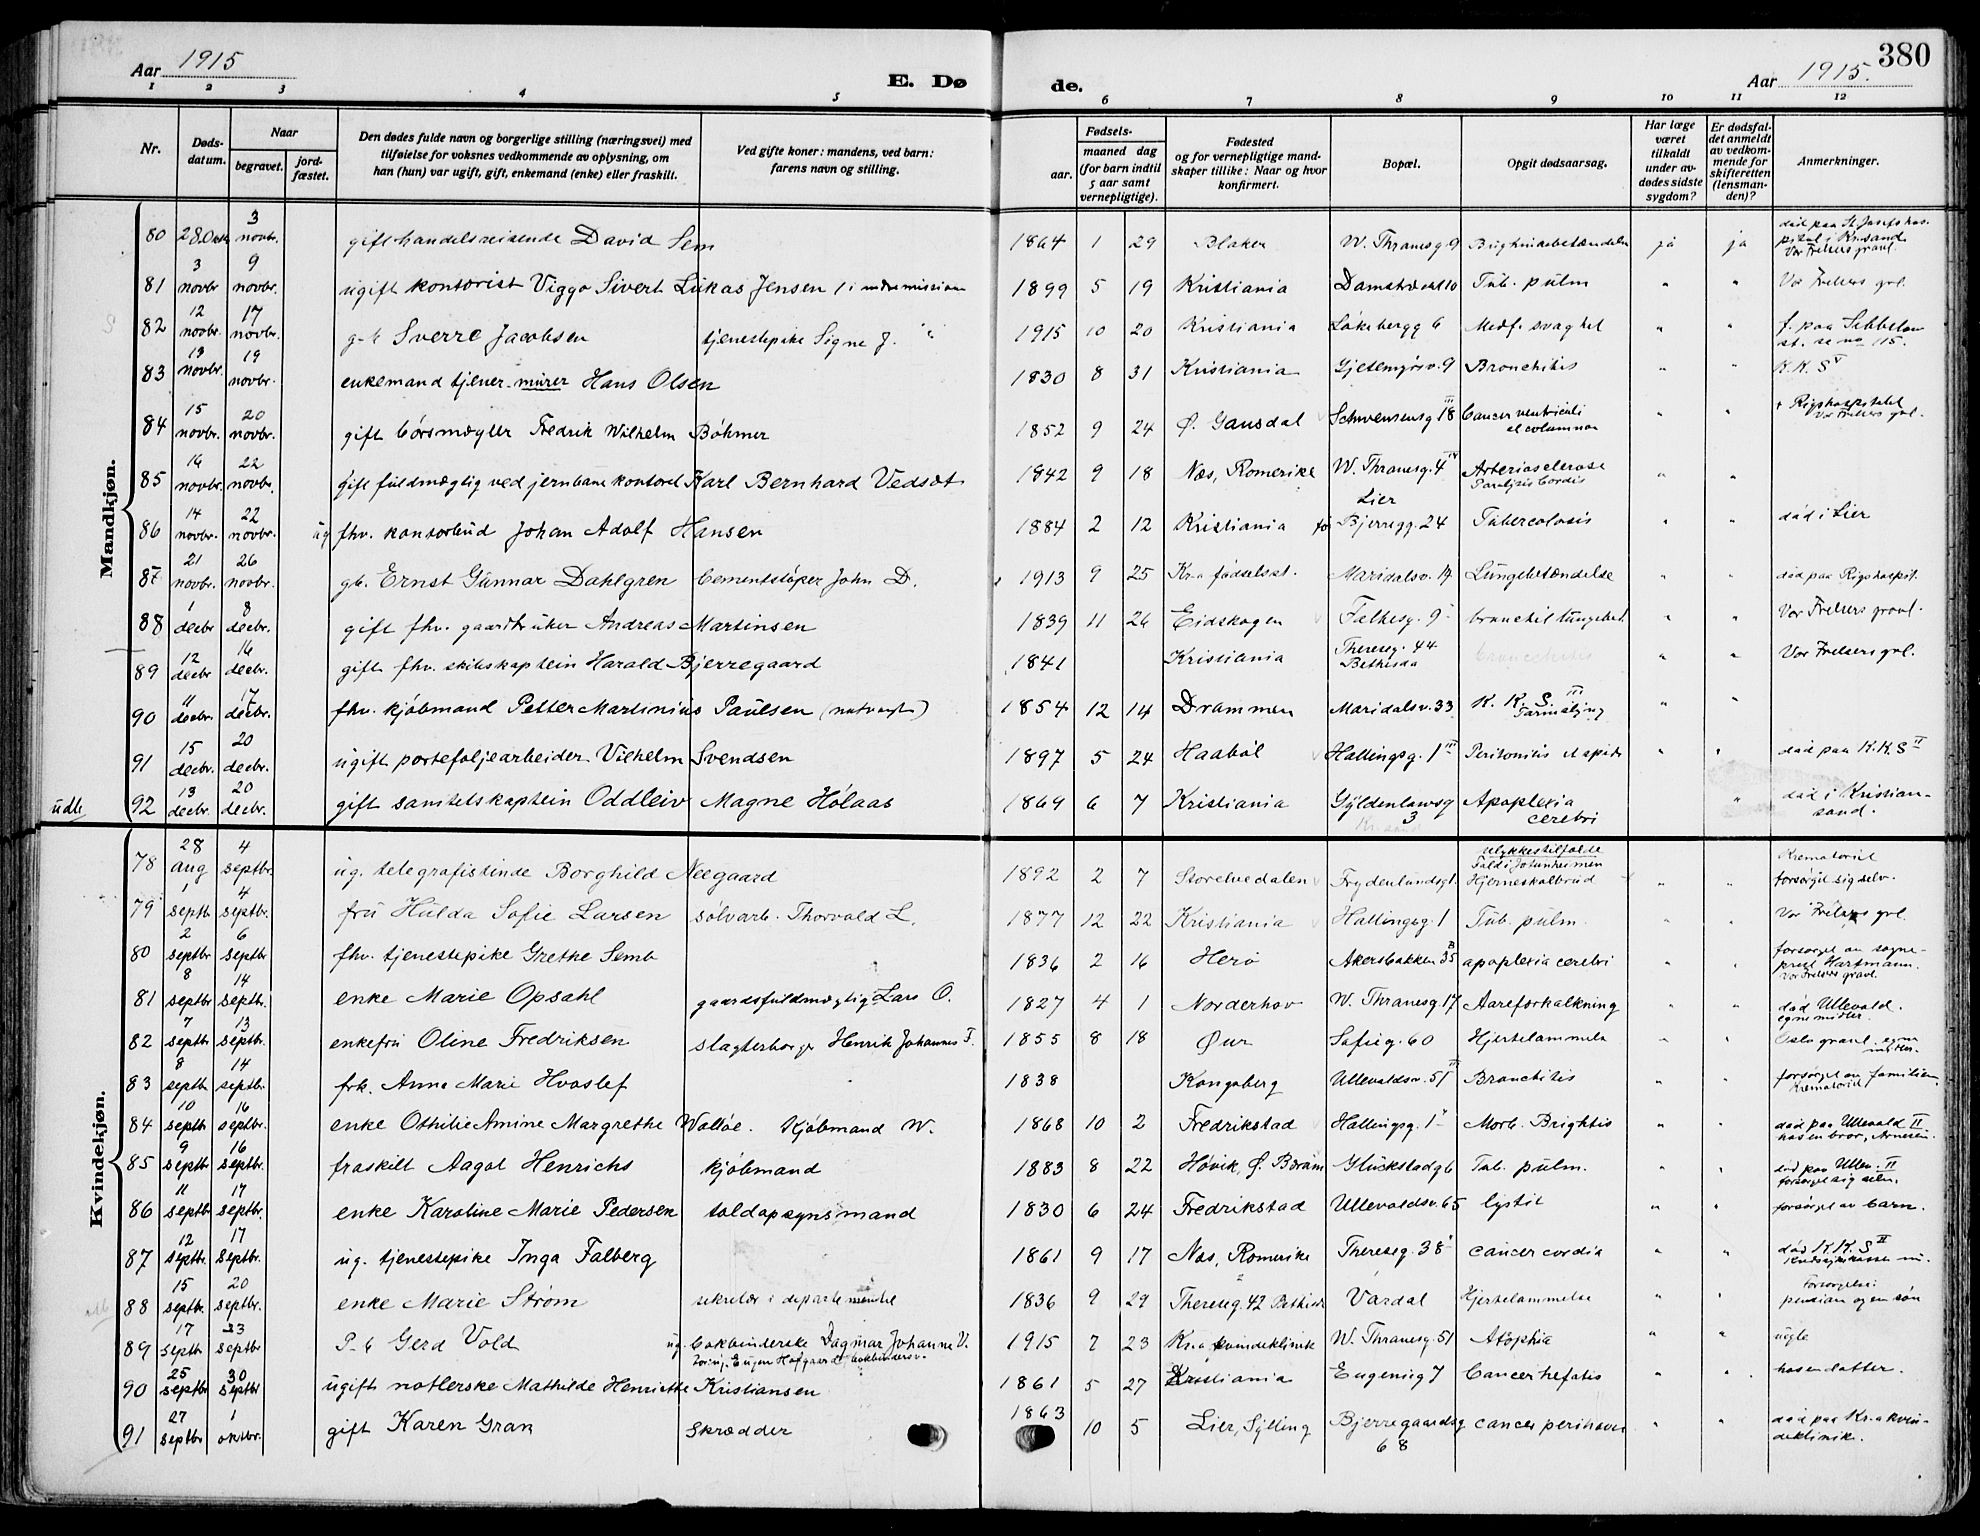 380
Aar 1915
E. Dø de.
Aar 1915.
1 2 3 4 5 6 7 8 9 10 11 12
Nr.
Døds-
datum.
Naar
begravet.
jord-
fæstet.
Den dødes fulde navn og borgerlige stilling (næringsvei) med
tilføielse for voksnes vedkommende av oplysning, om
han (hun) var ugift, gift, enkemand (enke) eller fraskilt.
Ved gifte koner: mandens, ved barn:
farens navn og stilling.
Fødsels-
aar.
maaned dag
(for barn indtil
5 aar samt
vernepligtige).
Fødested
og for vernepligtige mand-
skaper tillike: Naar og hvor
konfirmert.
Bopæl.
Opgit dødsaarsag.
Har læge
været
tilkaldt
under av-
dødes sidste
sygdom?
Er dødsfal-
det anmeldt
av vedkom-
mende for
skifteretten
(lensman-
den)?
Anmerkninger.
Mandkjøn.
80 28 Oktb 3 novbr. gift handelsreisende David Sem 1864 1 29 Blaker W. Thranesg 9 ja ja død paa St Josefs hospital i Kr.sand Vor Frelsers gravl.
81 3 novbr 9 novbr. ugift kontorist Viggo Sivert Lukas Jensen 1899 5 19 Kristiania Tub. pulm " " Vor Frelsers gvl.
82 12 novbr. 17 novbr. Sverre Jacobsen tjenestepike Signe J. " 1915 10 20 Kristiania Løkebergg 6 Medf. svaghet " " f. paa
83 13 novbr. 19 novbr. enkemand tjener murer Hans Olsen 1830 8 31 Kristiania Gjetemyrsv. 9 Bronchitis " " K.K.S V
84 15 novbr. 20 novbr. gift børsmægler Fredrik Wilhelm Böhmer 1852 9 24 Ø. Gausdal Schwensensg 18 III Cancer ventriculi et columnae " " + Rigshospitalet Vor Frelsers gvl.
85 16 novbr. 22 novbr. gift fuldmægtig ved jernbanekontoret Karl Bernhard Vedsæt 1842 9 18 Næs, Romerike W. Thranesg. 4 IV Arteriosclerose Paralysis Cordis " "
86 14 novbr. 22 novbr. ug fhv. kontorbud Johan Adolf Hansen 1884 2 12 Kristiania Lier Bjerregg. 24 Tuberculosis " " død i Lier
87 21 novbr. 26 novbr. gb. Ernst Gunnar Dahlgren Cementstøper John D. 1913 9 25 Kr.a fødselsst. Maridalsv. 19 Lungebetændelse " " død paa Rigshospit.
88 1 decbr. 8 decbr. gift fhv. gaardbruker Andreas Martinsen 1839 11 26 Eidskogen Falkesg. 9 " " Vor Frelsers gravl.
89 12 decbr 16 decbr. gift fhv. skibskaptein Harald Bjerregaard 1841 Kristiania Thereseg. 44 Bethesda " " Vor Frelsers gvl.
90 11 decbr. 17 decbr. fhv. kjøbmand Petter Martinius Paulsen 1854 12 14 Drammen Maridalsv. 33 K. K. S. III " "
91 15 decbr. 20 decbr. ugift portefoljearbeider Vilhelm Svendsen 1897 5 24 Haabøl Hallingsg. 1 III Peritonitis " død paa K.K.S II
udle 92 13 decbr. 20 decbr. gift sanitetskaptein Oddleiv Magne Hølaas 1869 6 7 Kristiania Gyldenløwesg 3 Apoplexia cerebri " død i Kristian-
sand.
Kvindekjøn.
78 28 aug 4 septbr. ug. telegrafistinde Borghild Neegaard 1892 2 7 Storelvedalen Frydenlundsgt. Ulykkestilfælde Fald i Jotunheimen Hjerneskalbrud " " Krematoriet forsørget sig selv.
79 1 septbr 4 septbr. fru Hulda Sofie Larsen sølvarb. Thorvald L. 1877 12 22 Kristiania Hallingsg. 1 Tub. pulm. " " Vor Frelsers gvl.
80 2 septbr 6 septbr fhv. tjenestepike Grethe Semb 1836 2 16 Herø Akersbakken 35 B apoplexia cerebri " " forsørget av sogne-
prest Hartmann. Vor Frelsers gravl.
81 8 septbr 14 septbr. enke Marie Opsahl gaardsfuldmægtig Lars O. 1827 4 1 Norderhov W. Thranesg. 17 Aareforkalkning " " død Ullevald. egne midler.
82 7 septbr 13 septbr. enkefru Oline Fredriksen slagterborger Henrik Johannes F. 1855 8 18 Øur Sofieg. 60 Hjertelammelse " " Oslo gravl. egne midler.
83 8 septbr 14 septbr. frk. Anna Marie Hvoslef 1838 Kongsberg Ullevaldsv. 51 II Bronchitis " " forsørget av familien. Krematoriet
84 10 septbr 16 septbr. enke Othilie Amine Margrethe Walløe. Kjøbmand W. 1868 10 2 Fredrikstad Hallingsg. 1 Morb. Brightis " " død paa Ullevald II hos en bror, Arnesen.
85 9 septbr 16 septbr. fraskilt Aagot Henrichs kjøbmand 1883 8 22 Høvik, Ø. Bærum Glückstadg 6 Tub. pulm. " " død paa Ullev. II forsørget sig selv.
86 11 septbr 17 septbr. enke Karoline Marie Pedersen toldopsynsmand 1830 6 24 Fredrikstad Ullevaldsv. 65 " " forsørget av barn.
87 12 septbr. 17 septbr. ug. tjenestepike Inga Falberg 1861 9 17 Næs, Romerike Thereseg. 38 cancer cordia " " død K.K.S II
88 15 septbr. 20 septbr. enke Marie Strøm sekretær i departementet 1836 9 29 Thereseg. 42 Bethesda Vardal Hjertelammelse " " Forsørgelse: pension og en søn
89 17 septbr 23 septbr P-b Gerd Vold ug. bokbinderske Dagmar Johanne V. 1915 7 23 Kr.a kvindeklinik W. Thranesg. 51 Atrophia " " uegte
90 25 septbr 30 septbr ugift notterske Mathilde Henriette Kristiansen 1861 5 27 Kristiania Eugenieg 7 Cancer hepatis " " hos en datter.
91 27 septbr 1 oktbr. gift Karen Gran Skrædder 1863 10 5 Lier, Sylling Bjerregaardsg 68 " " død paa Kr.a kvin-
deklinik.